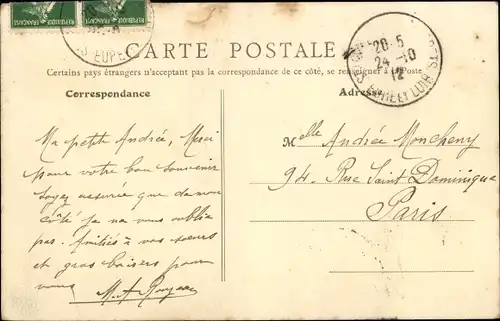 CARTE POSTALE
Certains pays étrangers n'acceptant pas la correspondance de ce côté, se renseigner à la Poste
Correspondance
Ma petite Andrée, Merci
pour votre bon souvenir
soyez assurée que de mon
côté je ne vous oublie
pas. Amitiés à vos sœurs
et gros baisers pour
vous
M. A.
Adresse
Melle Andrée Moncheny
94. Rue Saint Dominique
Paris
20-5
24-10
12
EURE ET LOIR